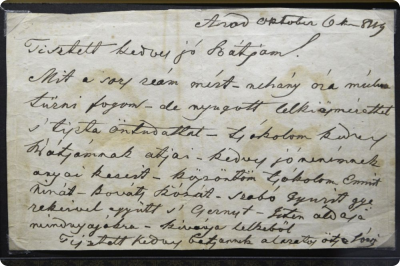 Arad oktober 6k 849
Tisztelt kedves jó Bátyám!
Mit a sors reám mért – nehány óra mulva
türni fogom – de nyugott lelkiismérettel
s tiszta öntudattal – Csokolom kedves
Batyámnak atyai – kedves jó nenémnek
anyai kezeit – köszöntöm Csokolom Emmit
Ninát – Kováts Kósát – Szabó Gyurit gye
rekeivel együtt s Gernyit – Isten aldaja
mindnyájokra – kivanja lelkéből
Tisztelt kedves Bátyámnak alázatos öcse